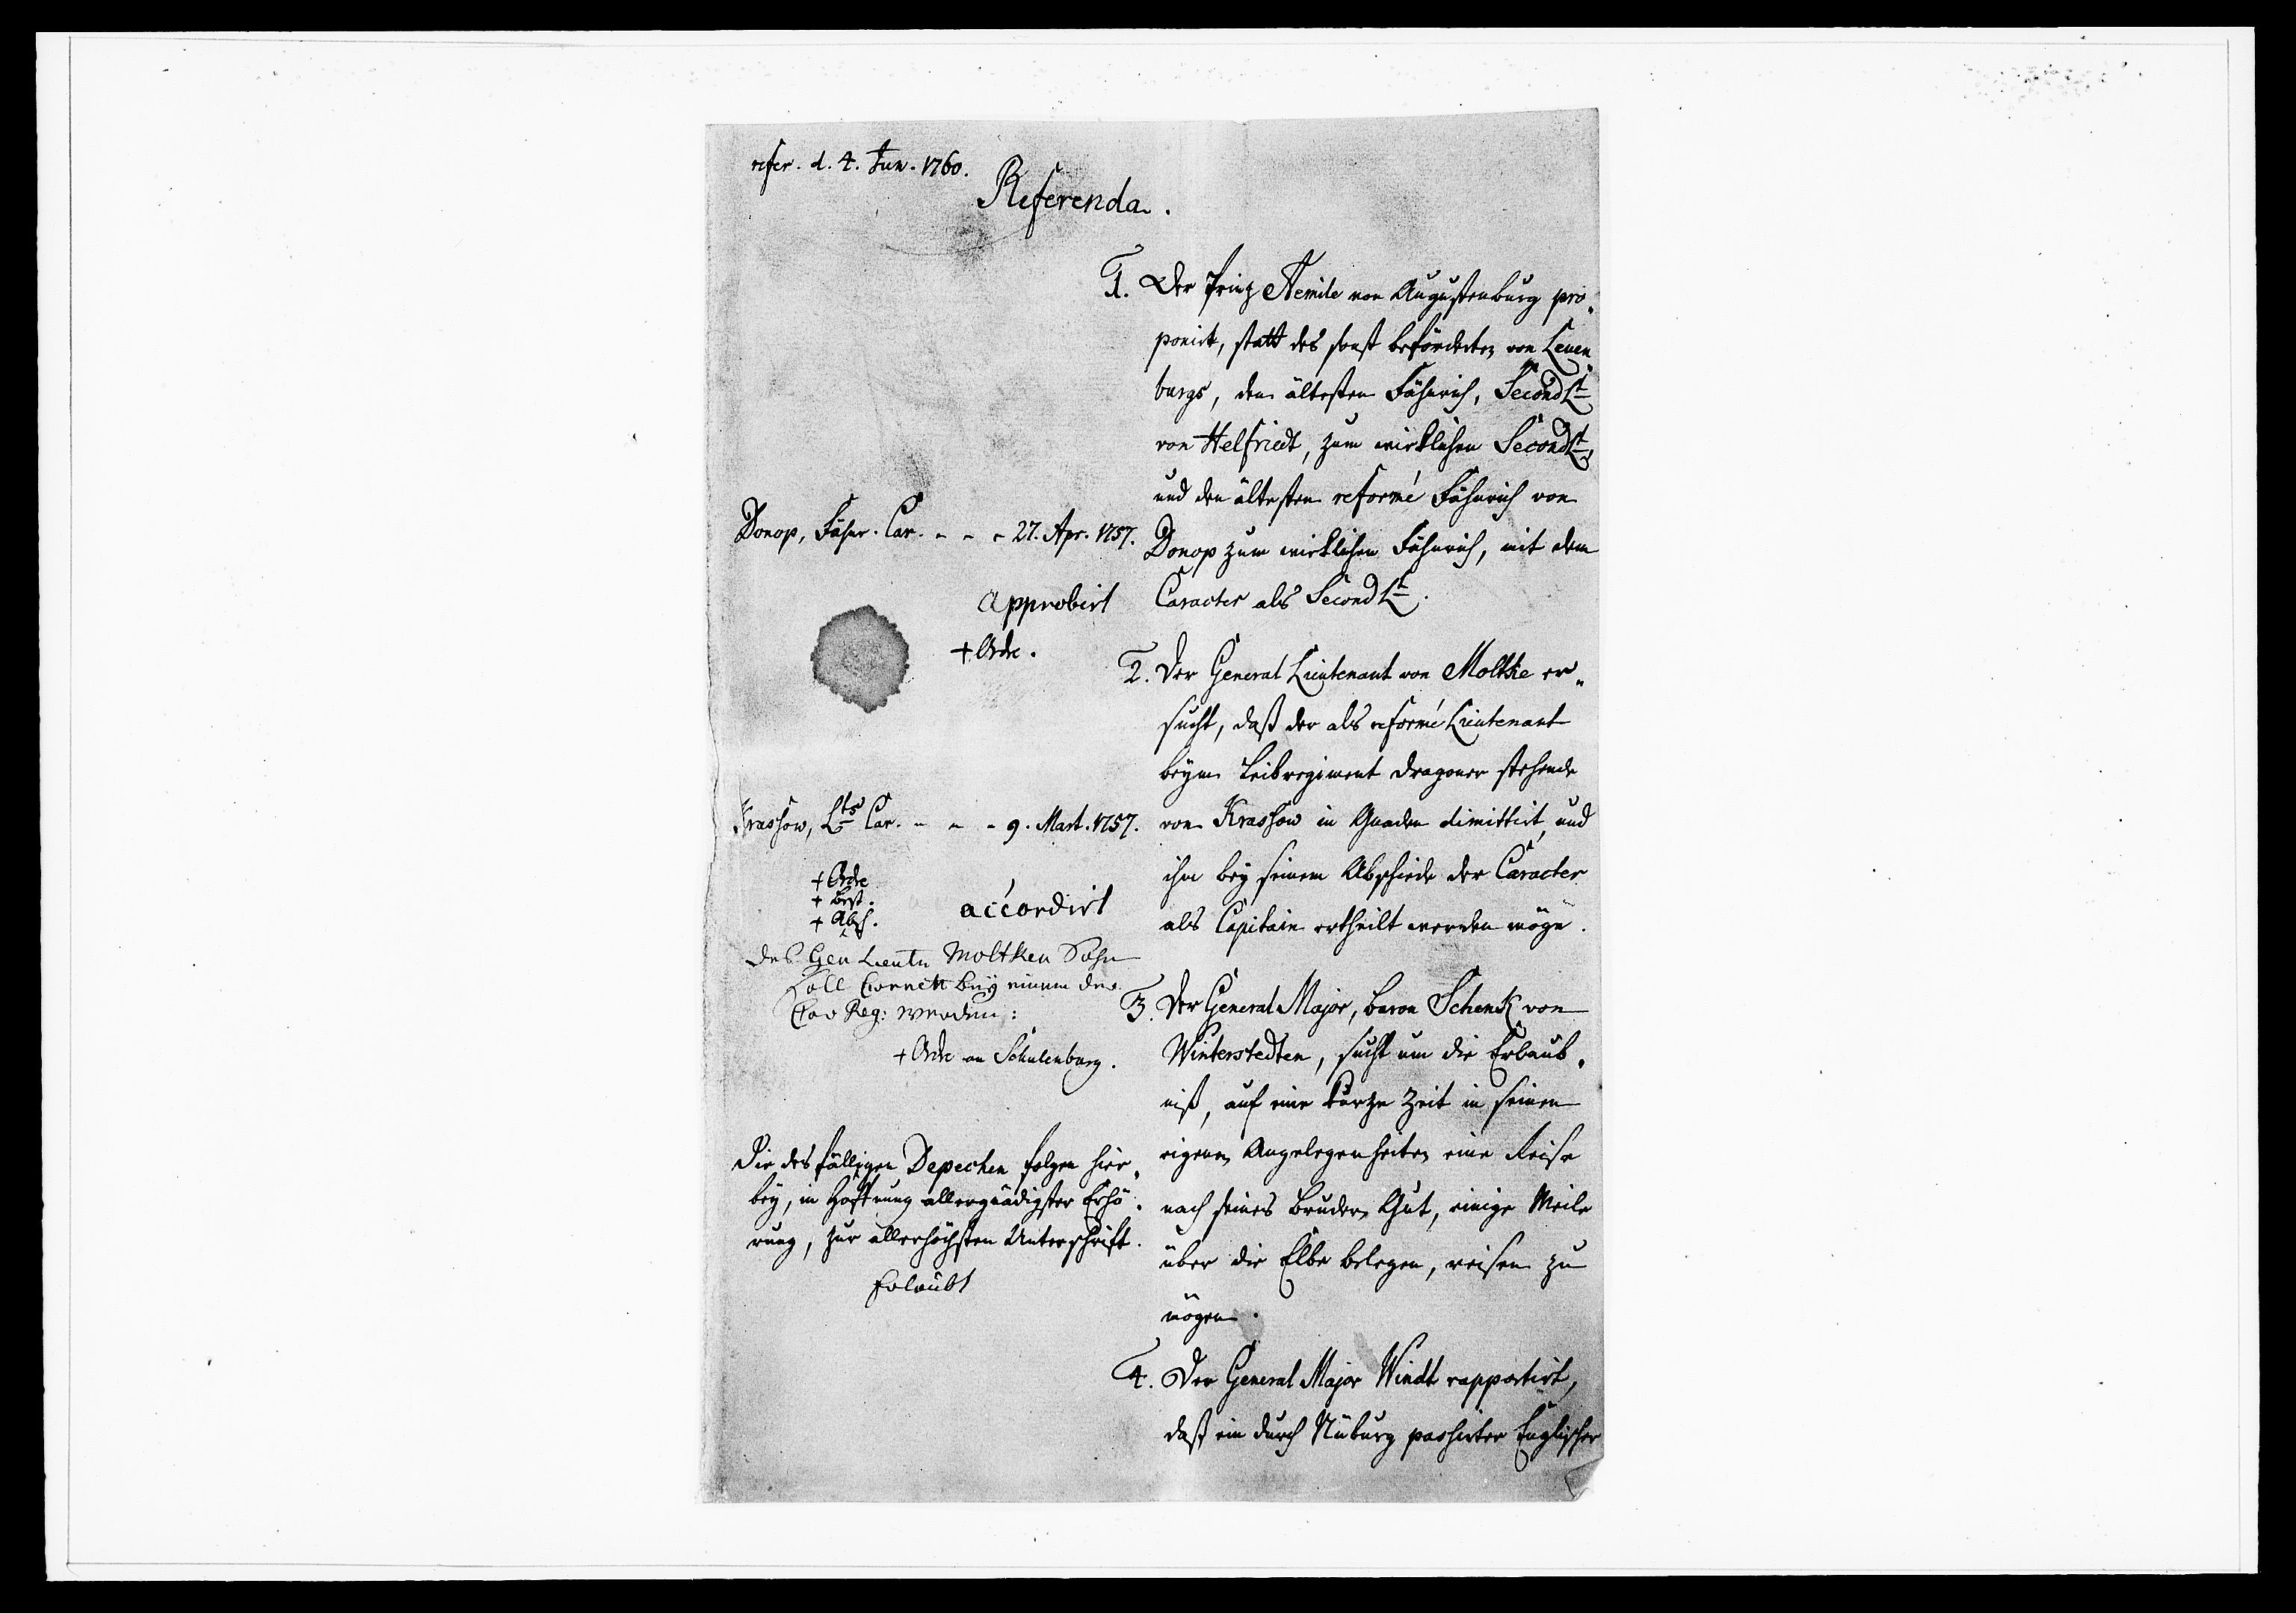 refer. d. 4. Jun. 1760.
Referenda.
1. Der Prinz Aemile von Augustenburg pro„
ponirt, statt des sonst beförderten von Leuen„
burgs, den ältesten Fähnrich, Second Lt.
von Helfriedt, zum wirklichen Second Lt.,
und den ältesten reformé Fähnrich von
Donop zum wirklichen Fähnrich, mit dem
Caracter als Second Lt.
Donop, Fähnr. Car. - - - 27. Apr. 1757.
Approbirt
+ Ordre.
2. Der General Lieutenant von Moltke er„
sucht, daß der als reformé Lieutenant
beym Leibregiment Dragoner stehende
von Krassow in Gnaden dimittirt, und
ihm bey seinem Abschiede der Caracter
als Capitain ertheilt werden möge.
Krassow, Lts Car. - - - 9. Mart. 1757.
+ Ordre
+ Best.
+ Absch.
accordirt
des Gen Lieutn Moltken Sohn
soll Cornett bey einem der
Cav Reg: werden:
+ Ordre an Schulenburg.
3. Der General Major, Baron Schenk von
Winterstedten, sucht um die Erlaub„
niß, auf eine kurze Zeit in seinen
eigenen Angelegenheiten eine Reise
nach seines Bruders Gut, einige Meile
über die Elbe belegen, reisen zu
mögen.
Die desfälligen Depechen folgen hier„
bey, in Hoffnung allergnädigster Erhö„
rung, zur allerhöchsten Unterschrift.
Erlaubt
4. Der General Major Windt rapportirt,
daß ein durch Nüburg passirter Englischer